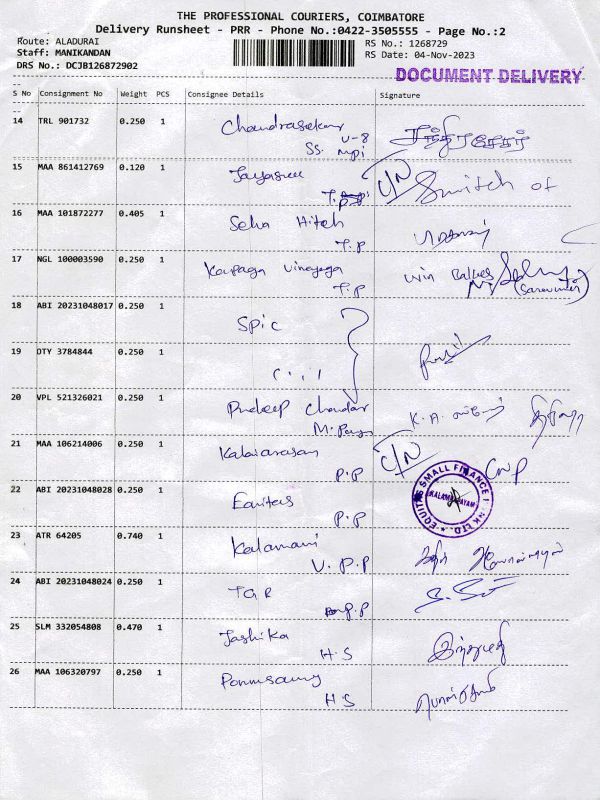 THE PROFESSIONAL COURIERS, COIMBATORE
Delivery Runsheet - PRR - Phone No.:0422-3505555 - Page No.:2
Route: ALADURAI
Staff: MANIKANDAN
DRS No.: DCJB126872902
RS No.: 1268729
RS Date: 04-Nov-2023
DOCUMENT DELIVERY
S No Consignment No Weight PCS Consignee Details Signature
14 TRL 901732 0.250 1 Chandrasekar
U-8
SS. Mpi
சந்திரசேகர்
15 MAA 861412769 0.120 1 Jayasree
C/N Switch of
16 MAA 101872277 0.405 1 Seha Hitech
T.P
17 NGL 100003590 0.250 1 Karpaga Vinayaga
T.P
(Saravanan)
18 ABI 20231048017 0.250 1 Spic
19 DTY 3784844 0.250 1
20 VPL 521326021 0.250 1 Pradeep Chandar
K.A.
21 MAA 106214006 0.250 1 Kalaiarasan
P.P
C/N
22 ABI 20231048028 0.250 1 Equitas
P.P
EQUITAS SMALL FINANCE BANK LTD.
23 ATR 64205 0.740 1 Kalamani
V.P.P
24 ABI 20231048024 0.250 1 TGR
P.P
25 SLM 332054808 0.470 1 Jashika
H.S
இந்துமதி
26 MAA 106320797 0.250 1 Ponnusamy
H S